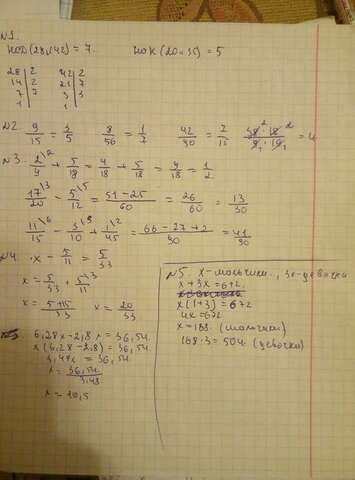 №1.
НОД(28,42) = 7. НОК(20 и 35) = 5
28 | 2 42 | 2
14 | 2 21 | 7
7 | 7 3 | 3
1 | 1 |
№2. 9/15 = 3/5 8/56 = 1/7 42/90 = = 4
№3. + 5/18 = 4/18 + 5/18 = 9/18 = 1/2
17\3/20 - 5\5/12 = 51-25/60 = 26/60 = 13/30
11\6/15 - 3\9/10 + 1\2/45 = 66-27+2/90 = 41/90
№4. x - 5/11 = 5/33
x = 5/33 + 5\3/11
x = 5+15/33 x = 20/33
6,28x - 2,8x = 36,54.
x(6,28-2,8) = 36,54.
3,48x = 36,54.
x = 36,54/3,48
x = 10,5
№5. x - мальчики., 3x - девочки
x + 3x = 672.
x(1+3) = 672
4x = 672
x = 168. (мальчики)
168·3 = 504. (девочки)